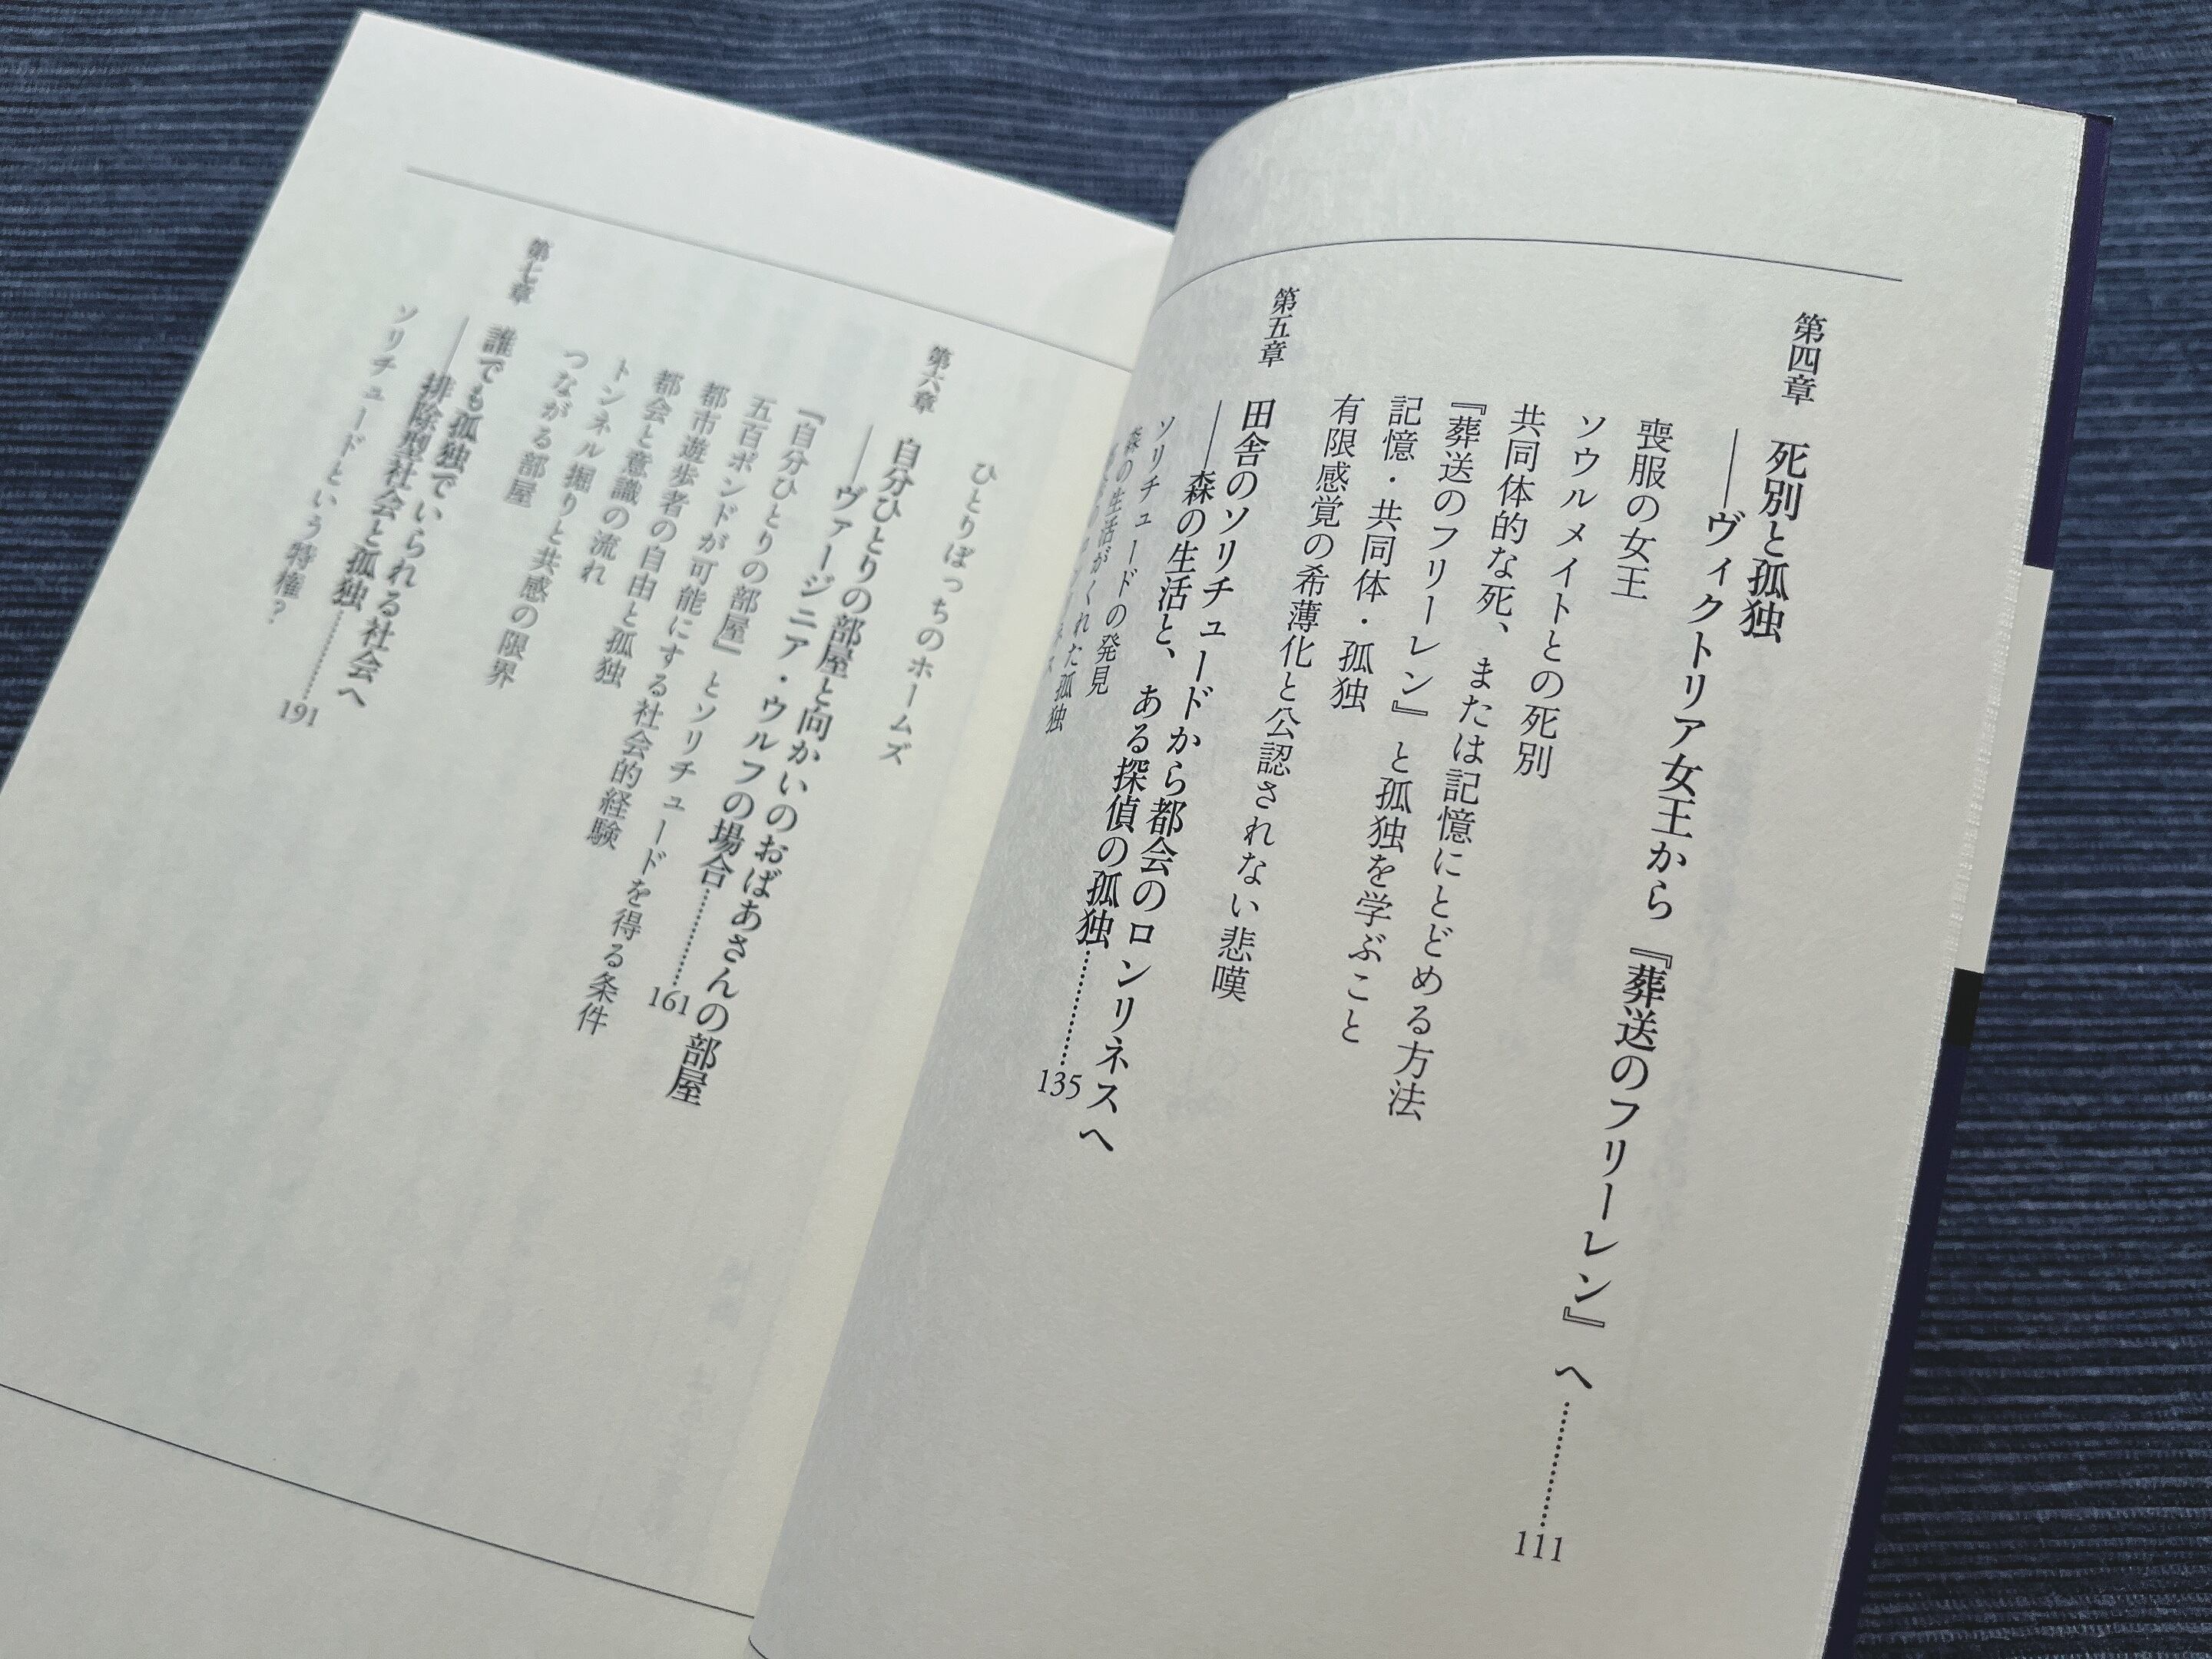 第四章 死別と孤独
――ヴィクトリア女王から『葬送のフリーレン』へ………111
喪服の女王
ソウルメイトとの死別
共同体的な死、または記憶にとどめる方法
『葬送のフリーレン』と孤独を学ぶこと
記憶・共同体・孤独
有限感覚の希薄化と公認されない悲嘆
第五章 田舎のソリチュードから都会のロンリネスへ
――森の生活と、ある探偵の孤独………135
ソリチュードの発見
森の生活がくれた孤独
ひとりぼっちのホームズ
第六章 自分ひとりの部屋と向かいのおばあさんの部屋
――ヴァージニア・ウルフの場合………161
『自分ひとりの部屋』とソリチュードを得る条件
五百ポンドが可能にする社会的経験
都市遊歩者の自由と孤独
都会と意識の流れ
トンネル掘りと共感の限界
つながる部屋
第七章 誰でも孤独でいられる社会へ
――排除型社会と孤独………191
ソリチュードという特権?